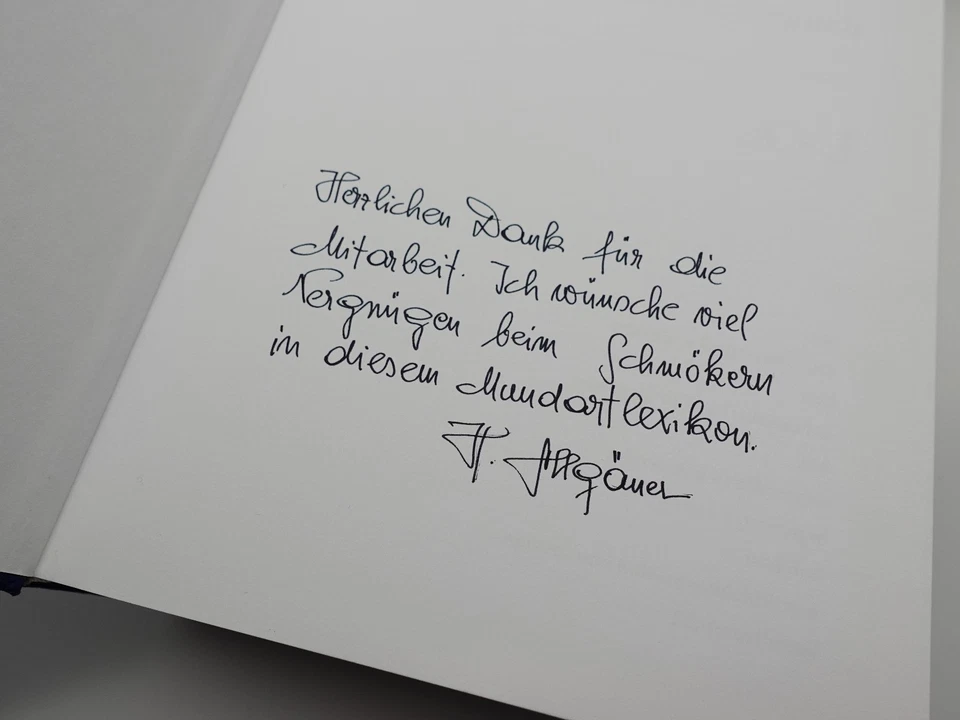 Herzlichen Dank für die
Mitarbeit. Ich wünsche viel
Vergnügen beim Schmökern
in diesem Mundartlexikon.
H. Allgäuer